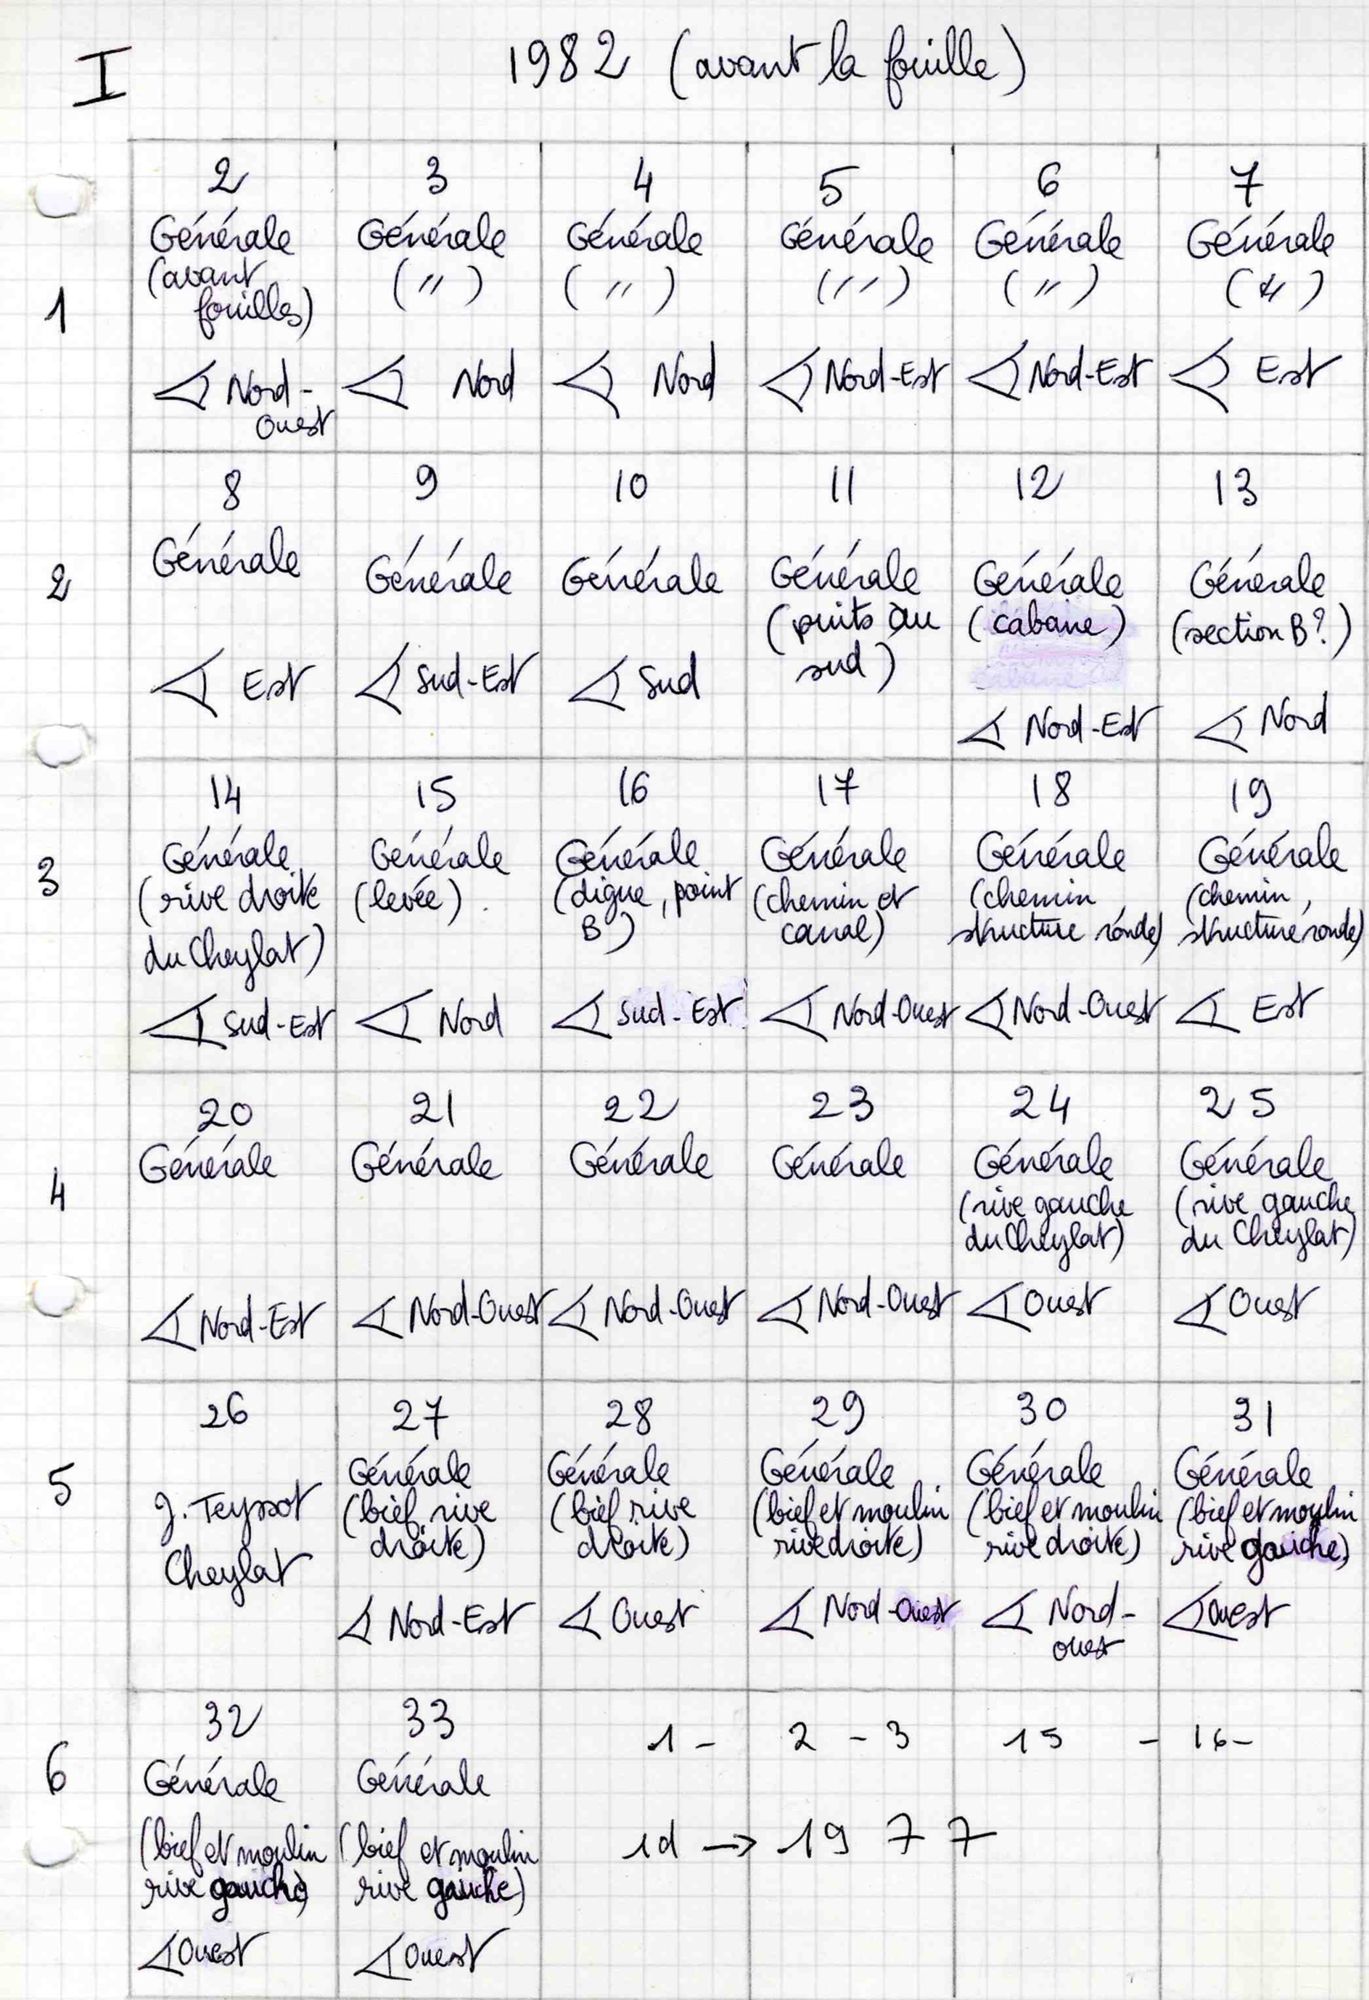 I
1982 (avant la fouille)
1
2
Générale
(avant
fouilles)
Nord-
Ouest
3
Générale
(")
Nord
4
Générale
(")
Nord
5
Générale
(")
Nord-Est
6
Générale
(")
Nord-Est
7
Générale
(")
Est
2
8
Générale
Est
9
Générale
Sud-Est
10
Générale
Sud
11
Générale
(puits au
sud)
12
Générale
(cabane)
Nord-Est
13
Générale
(section B?)
Nord
3
14
Générale
(rive droite
du Cheylat)
Sud-Est
15
Générale
(levée)
Nord
16
Générale
(digue, point
B)
Sud-Est
17
Générale
(chemin et
canal)
Nord-Ouest
18
Générale
(chemin,
structure ronde)
Nord-Ouest
19
Générale
(chemin,
structure ronde)
Est
4
20
Générale
Nord-Est
21
Générale
Nord-Ouest
22
Générale
Nord-Ouest
23
Générale
Nord-Ouest
24
Générale
(rive gauche
du Cheylat)
Ouest
25
Générale
(rive gauche
du Cheylat)
Ouest
5
26
J. Teyssot
Cheylat
27
Générale
(bief rive
droite)
Nord-Est
28
Générale
(bief rive
droite)
Ouest
29
Générale
(bief et moulin
rive droite)
Nord-Ouest
30
Générale
(bief et moulin
rive droite)
Nord-
ouest
31
Générale
(bief et moulin
rive gauche)
Ouest
6
32
Générale
(bief et moulin
rive gauche)
Ouest
33
Générale
(bief et moulin
rive gauche)
Ouest
1 - 2 - 3 15 - 16 -
1d → 1977